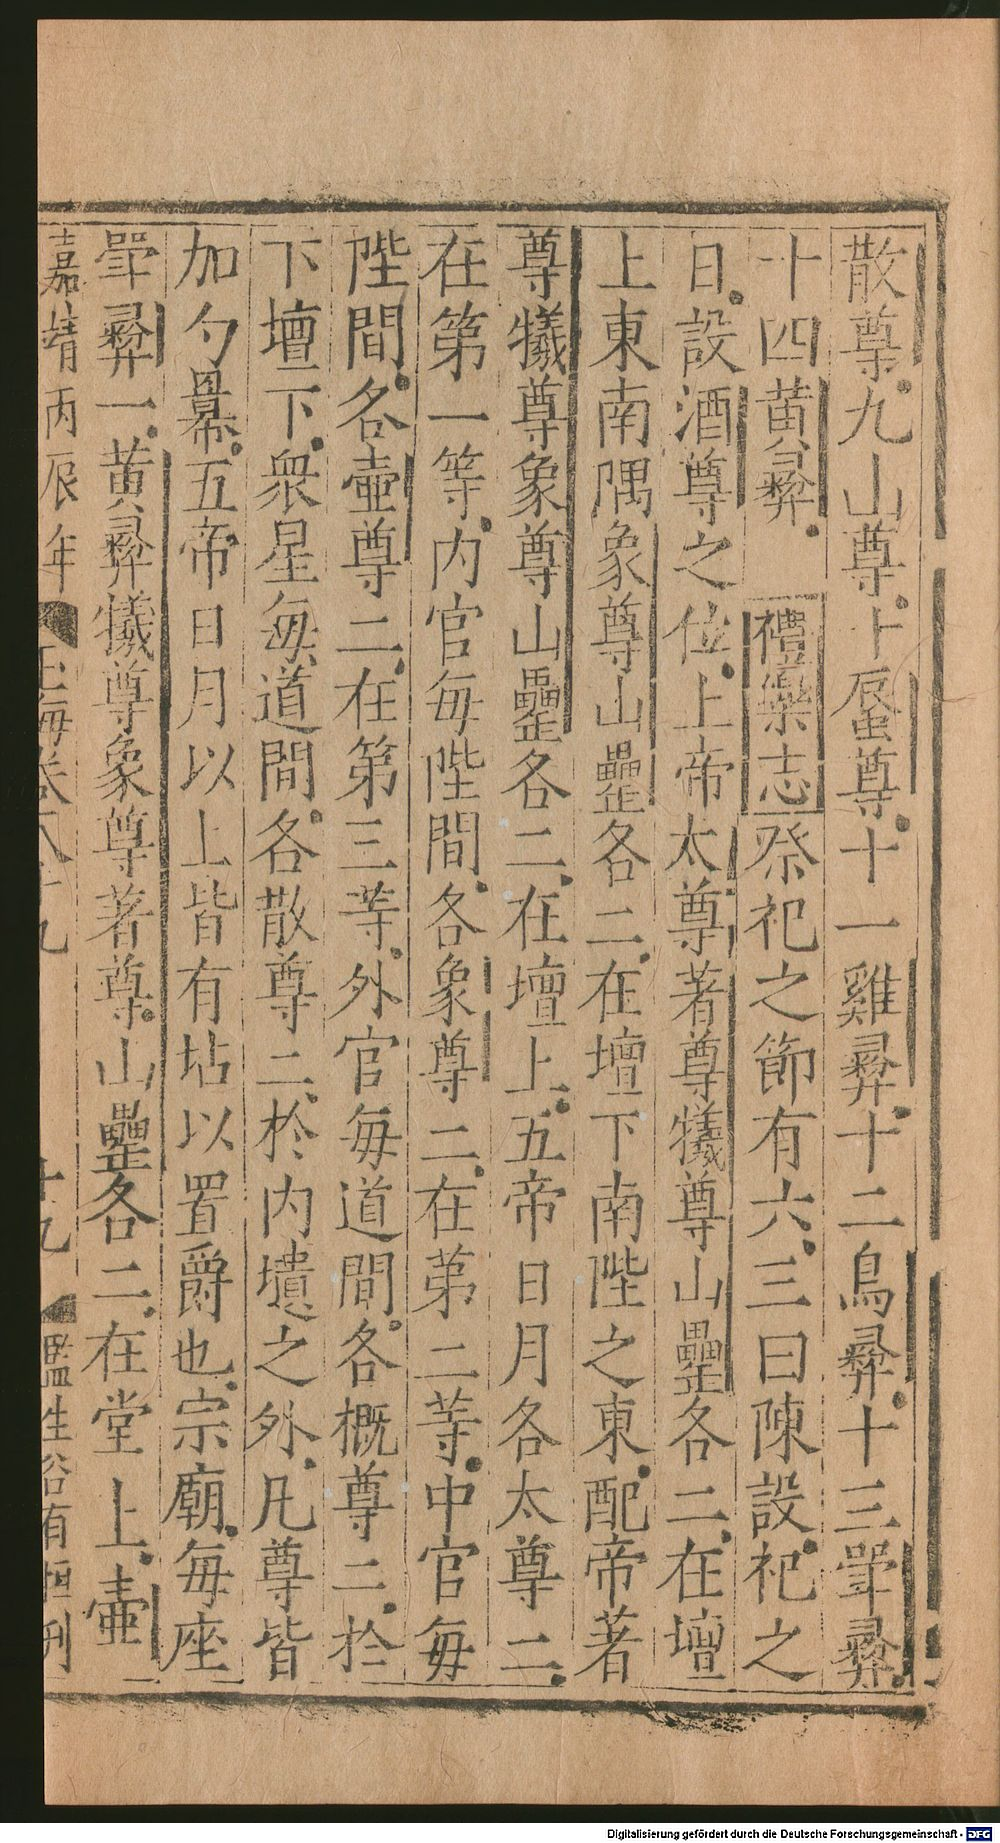 散尊九山尊十蜃尊十一雞彝十二鳥彝十三斝彝
十四黄彝 禮樂志祭祀之節有六三曰陳設祀之
日設酒尊之位上帝太尊著尊犧尊山罍各二在壇
上東南隅象尊山罍各二在壇下南陛之東配帝著
尊犧尊象尊山罍各二在壇上五帝日月各太尊二
在第一等内官每陛間各象尊二在第二等中官每
陛間各壺尊二在第三等外官每道間各概尊二於
下壇下衆星每道間各散尊二於内壝之外凡尊皆
加勺冪五帝日月以上皆有坫以置爵也宗廟每座
斝彝一黄彝犧尊象尊著尊山罍各二在堂上壺
嘉靖丙辰年 玉海卷八十九 十九 監生谷有恒刊
Digitalisierung gefördert durch die Deutsche Forschungsgemeinschaft - DFG